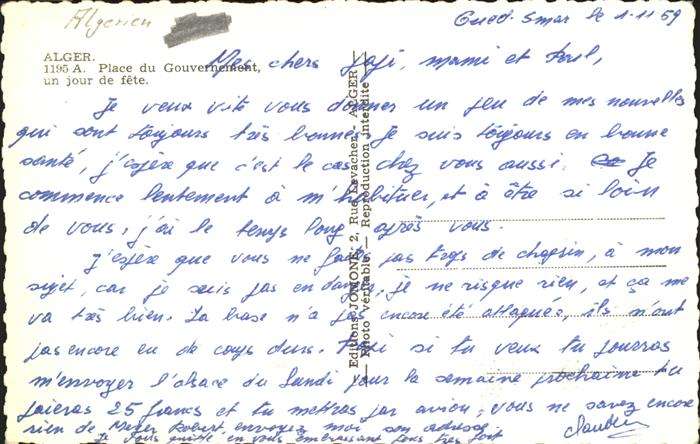 Algerien
Oued-Smar le 1-11-59
ALGER.
1195 A. Place du Gouvernement,
un jour de fête.
Mes chers papi, mami et Paul,
Je veux vite vous donner un peu de mes nouvelles
qui sont toujours très bonnes. Je suis toujours en bonne
santé, j'espère que c'est le cas chez vous aussi. Je
commence lentement à m'habituer, et à être si loin
de vous, j'ai le temps long après vous.
J'espère que vous ne faites pas trop de chagrin, à mon
sujet, car je suis pas en danger, je ne risque rien, et ça me
va très bien. La base n'a pas encore été attaquée, ils n'ont
pas encore eu de coups durs. si tu veux tu pourras
m'envoyer l'alsace du Lundi pour la semaine prochaine tu
paieras 25 francs et tu mettras par avion, vous ne savez encore
rien de Meyer Robert, envoyez moi son adresse
Je vous quitte en vous embrassant tous très fort
Claude
Editions JOMONE, 2, Rue Levacher - ALGER
Photo véritable - Reproduction interdite